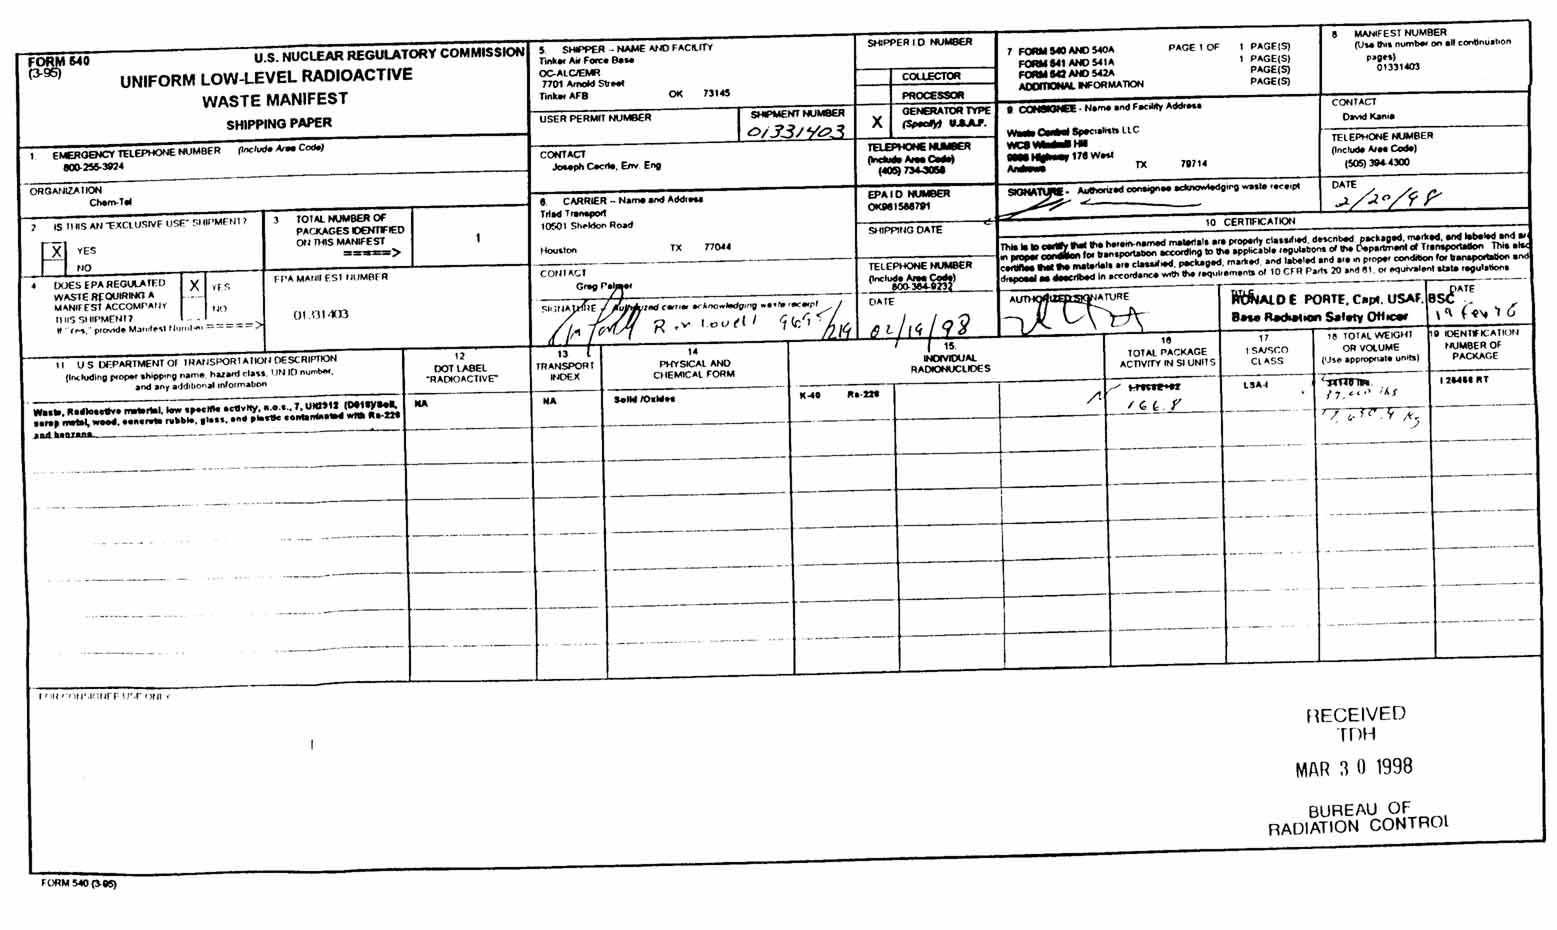 FORM 540
(3-95)
U.S. NUCLEAR REGULATORY COMMISSION
UNIFORM LOW-LEVEL RADIOACTIVE
WASTE MANIFEST
SHIPPING PAPER
1. EMERGENCY TELEPHONE NUMBER (Include Area Code)
800-255-3924
ORGANIZATION
Chem-Tel
2 IS THIS AN "EXCLUSIVE USE" SHIPMENT?
X YES
NO
3 TOTAL NUMBER OF
PACKAGES IDENTIFIED
ON THIS MANIFEST
=====>
1
4 DOES EPA REGULATED
WASTE REQUIRING A
MANIFEST ACCOMPANY
THIS SHIPMENT?
If "Yes," provide Manifest Number =====>
X YES
NO
EPA MANIFEST NUMBER
01331403
5. SHIPPER - NAME AND FACILITY
Tinker Air Force Base
OC-ALC/EMR
7701 Arnold Street
Tinker AFB OK 73145
USER PERMIT NUMBER
SHIPMENT NUMBER
01331403
CONTACT
Joseph Cecrle, Env. Eng
SHIPPER I D NUMBER
COLLECTOR
PROCESSOR
X GENERATOR TYPE
(Specify) U.S.A.F.
TELEPHONE NUMBER
(Include Area Code)
(405) 734-3058
6. CARRIER - Name and Address
Triad Transport
10501 Sheldon Road
Houston TX 77044
EPA I D NUMBER
OK981588791
SHIPPING DATE
CONTACT
Greg Palmer
TELEPHONE NUMBER
(Include Area Code)
800-364-9232
SIGNATURE - Authorized carrier acknowledging waste receipt
DATE
02/19/98
7 FORM 540 AND 540A PAGE 1 OF 1 PAGE(S)
FORM 541 AND 541A 1 PAGE(S)
FORM 542 AND 542A PAGE(S)
ADDITIONAL INFORMATION PAGE(S)
8 MANIFEST NUMBER
(Use this number on all continuation
pages)
01331403
9 CONSIGNEE - Name and Facility Address
Waste Control Specialists LLC
WCS Windmill Hill
Highway 176 West
Andrews TX 79714
CONTACT
David Kania
TELEPHONE NUMBER
(Include Area Code)
(505) 394-4300
SIGNATURE - Authorized consignee acknowledging waste receipt
DATE
2/20/98
10 CERTIFICATION
This is to certify that the herein-named materials are properly classified, described, packaged, marked, and labeled and are
in proper condition for transportation according to the applicable regulations of the Department of Transportation This also
certifies that the materials are classified, packaged, marked, and labeled and are in proper condition for transportation and
disposal as described in accordance with the requirements of 10 CFR Parts 20 and 61, or equivalent state regulations
AUTHORIZED SIGNATURE
TITLE
RONALD E PORTE, Capt. USAF, BSC
Base Radiation Safety Officer
DATE
11 U S DEPARTMENT OF TRANSPORTATION DESCRIPTION
(Including proper shipping name, hazard class, UN ID number,
and any additional information
12
DOT LABEL
"RADIOACTIVE"
13
TRANSPORT
INDEX
14
PHYSICAL AND
CHEMICAL FORM
15.
INDIVIDUAL
RADIONUCLIDES
16
TOTAL PACKAGE
ACTIVITY IN SI UNITS
17
LSA/SCO
CLASS
18 TOTAL WEIGHT
OR VOLUME
(Use appropriate units)
19 IDENTIFICATION
NUMBER OF
PACKAGE
Waste, Radioactive material, low specific activity, n.o.s., 7, UN2912 (D018)/Soil,
scrap metal, wood, concrete rubble, glass, and plastic contaminated with Ra-226
and benzene
NA
NA
Solid /Oxides
K-40 Ra-226
166.8
LSA-I
34140 lbs.
FOR CONSIGNEE USE ONLY
RECEIVED
TDH
MAR 30 1998
BUREAU OF
RADIATION CONTROL
FORM 540 (3-95)